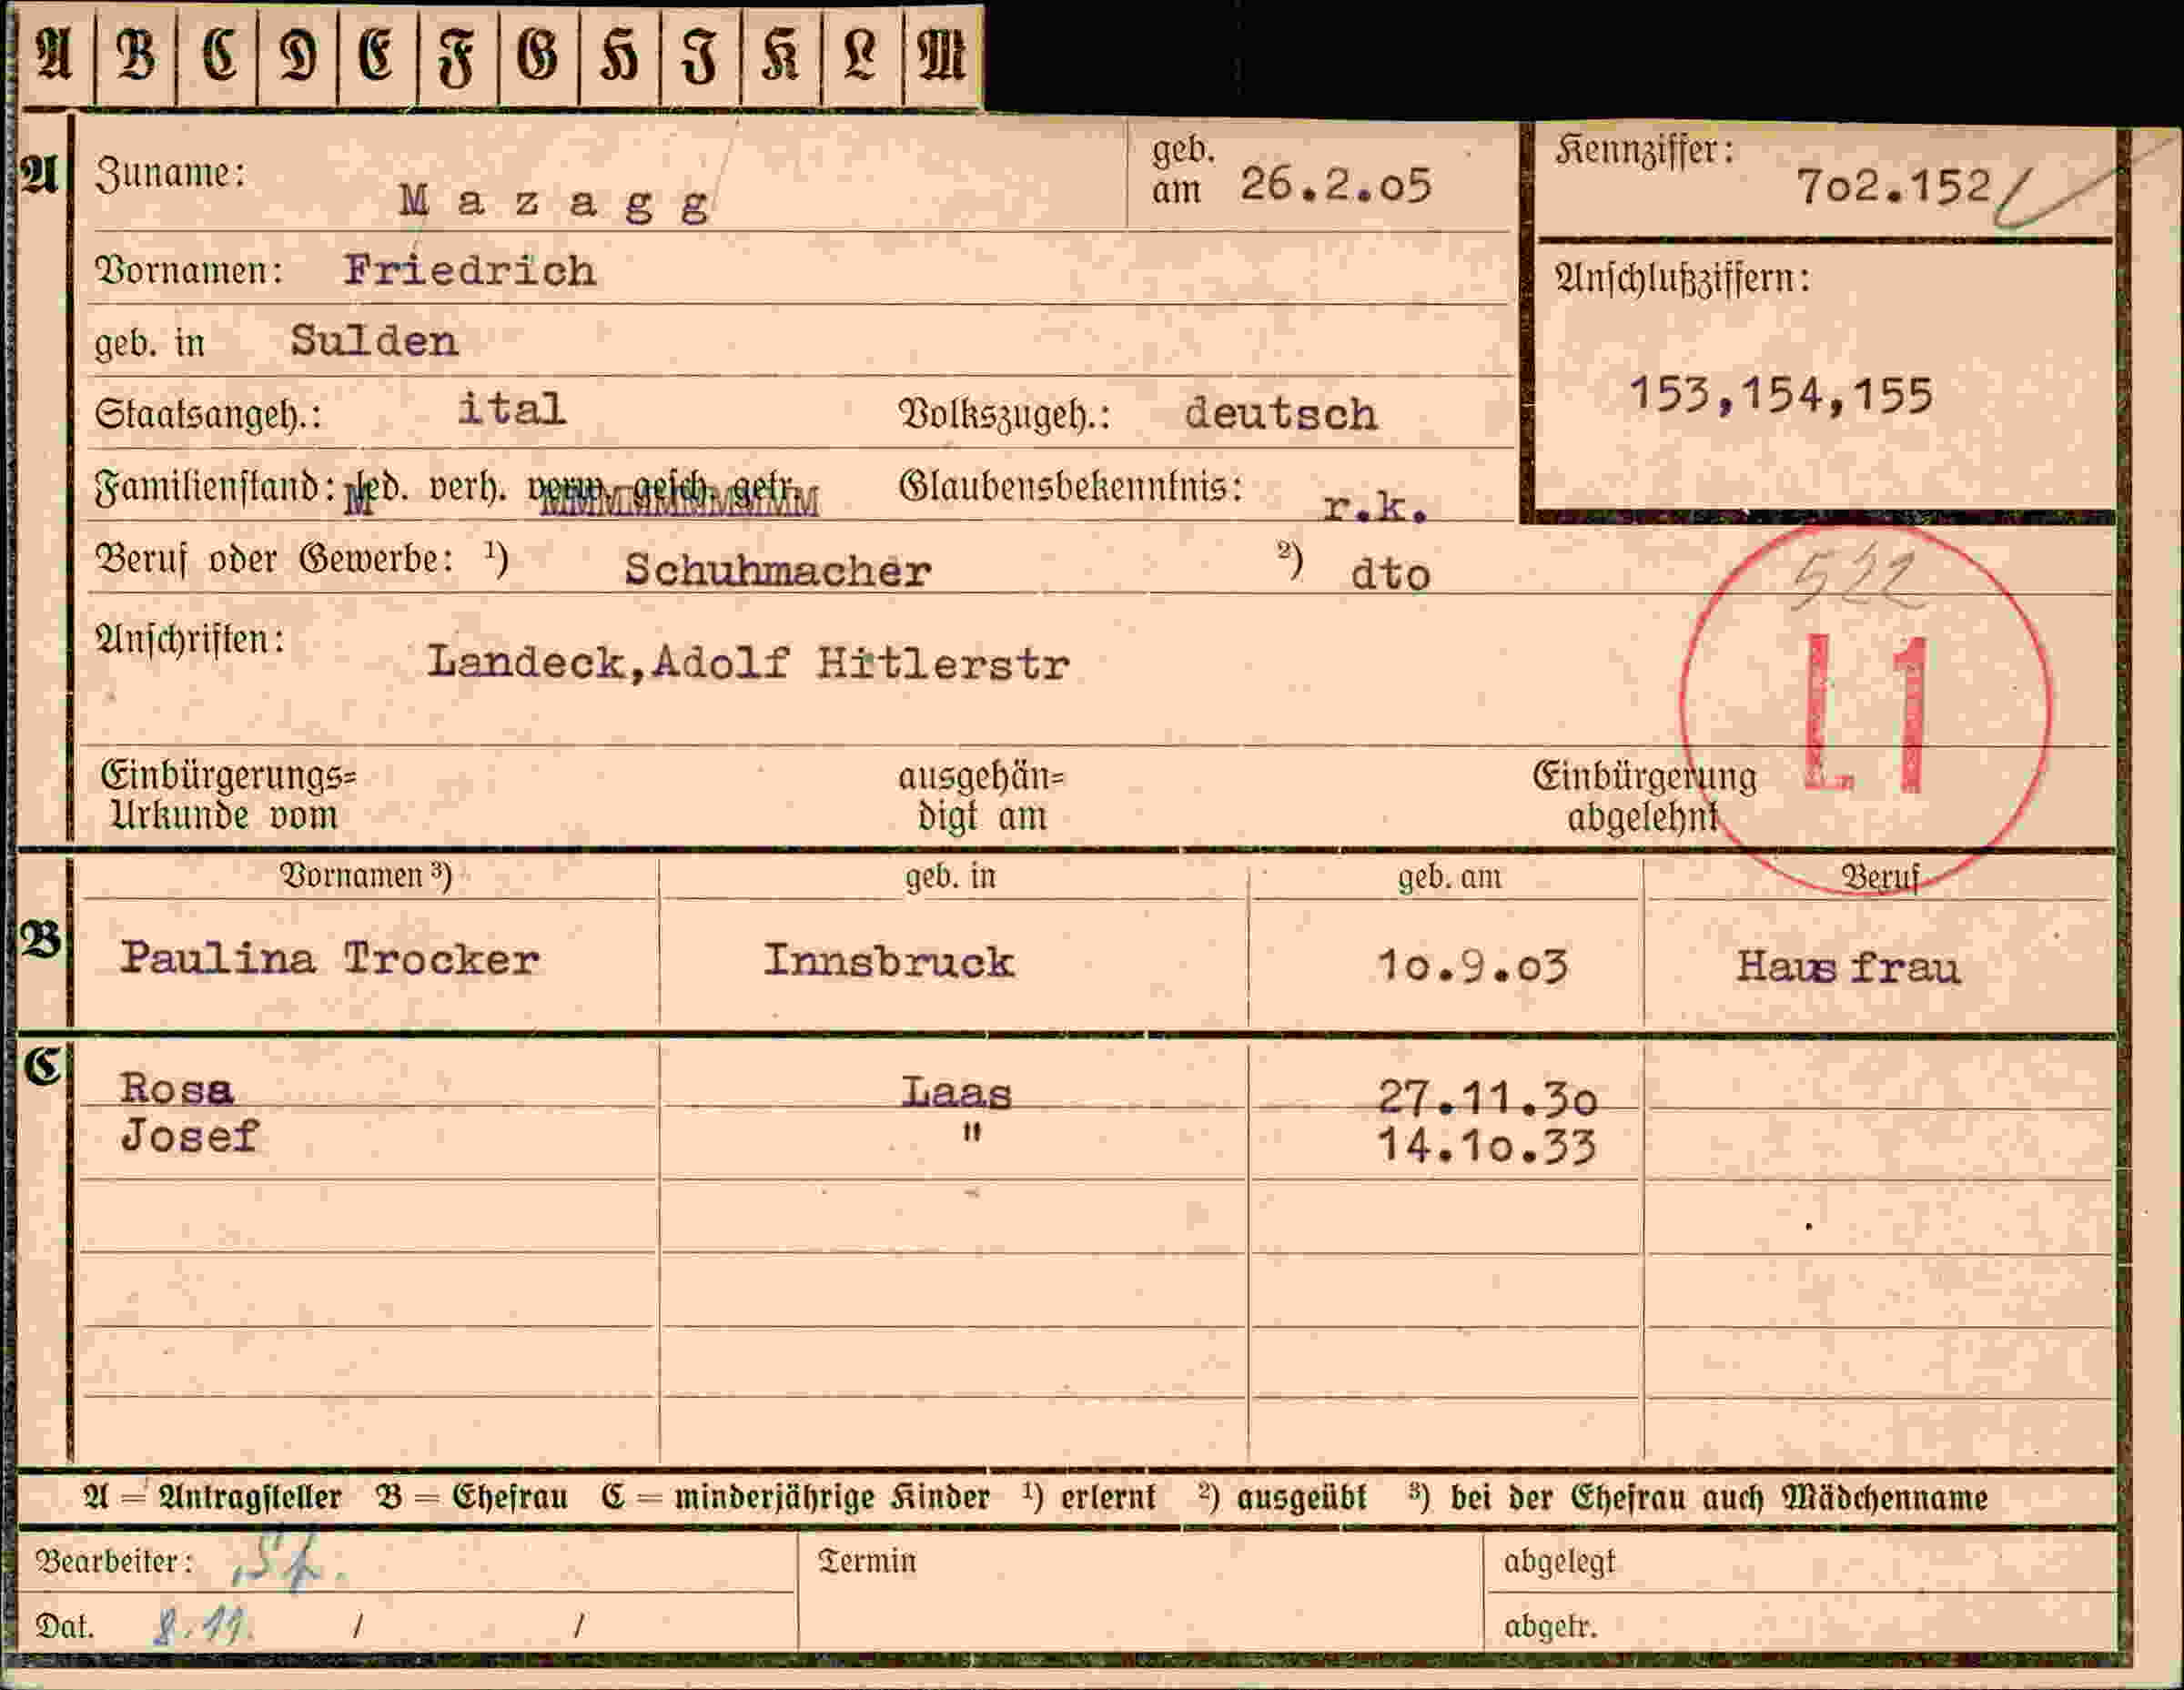 A B C D E F G H I K L M
A Zuname: Mazagg geb. am 26.2.05 Kennziffer: 702.152
Vornamen: Friedrich
geb. in Sulden Anschlußziffern:
153,154,155
Staatsangeh.: ital Volkszugeh.: deutsch
Familienstand: led. verh. verw. gesch. getr. Glaubensbekenntnis: r.k.
Beruf oder Gewerbe: ¹) Schuhmacher ²) dto
522
Anschriften: Landeck,Adolf Hitlerstr
L1
Einbürgerungs= ausgehän= Einbürgerung
Urkunde vom digt am abgelehnt
Vornamen ³) geb. in geb. am Beruf
B Paulina Trocker Innsbruck 10.9.03 Hausfrau
C Rosa Laas 27.11.30
Josef " 14.10.33
A = Antragsteller B = Ehefrau C = minderjährige Kinder ¹) erlernt ²) ausgeübt ³) bei der Ehefrau auch Mädchenname
Bearbeiter: Termin abgelegt
Dat. 8.11. / / abgetr.